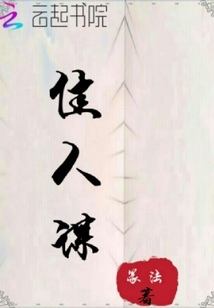 云起书院
佳人谋
法
著